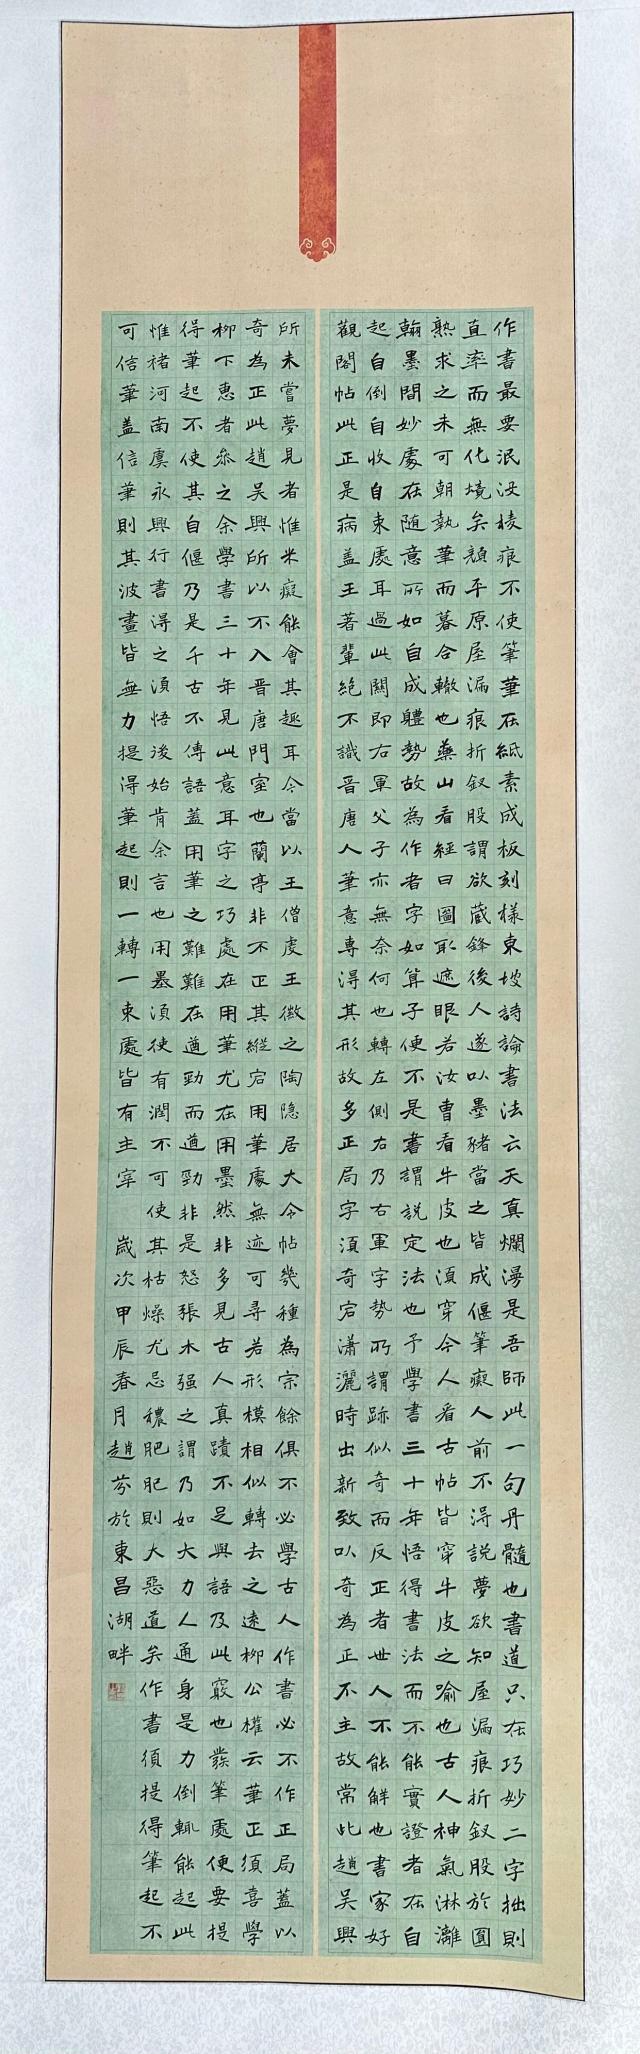 作書最要泯没棱痕不使筆筆在紙素成板刻樣東坡詩論書法云天真爛漫是吾師此一句丹髓也書道只在巧妙二字拙則
直率而無化境矣顏平原屋漏痕折釵股謂欲藏鋒後人遂以墨豬當之皆成偃筆癡人前不得説夢欲知屋漏痕折釵股於圓
熟求之未可朝執筆而暮合轍也藥山看經曰圖取遮眼若汝曹看牛皮也須穿今人看古帖皆穿牛皮之喻也古人神氣淋漓
翰墨間妙處在随意所如自成體勢故為作者字如算子便不是書謂説定法也予學書三十年悟得書法而不能實證者在自
起自倒自收自束處耳過此關即右軍父子亦無奈何也轉左側右乃右軍字勢所謂跡似奇而反正者世人不能解也書家好
觀閣帖此正是病蓋王著輩絕不識晉唐人筆意專得其形故多正局字須奇宕瀟灑時出新致以奇為正不主故常此趙吳興
所未嘗夢見者惟米癡能會其趣耳今當以王僧虔王徽之陶隱居大令帖幾種為宗餘俱不必學古人作書必不作正局蓋以
奇為正此趙吳興所以不入晉唐門室也蘭亭非不正其縱宕用筆處無迹可尋若形模相似轉去之遠柳公權云筆正須喜學
柳下惠者參之余學書三十年見此意耳字之巧處在用筆尤在用墨然非多見古人真蹟不足與語及此竅也發筆處便要提
得筆起不使其自偃乃是千古不傳語蓋用筆之難難在遒勁而遒勁非是怒張木强之謂乃如大力人通身是力倒輒能起此
惟褚河南虞永興行書得之須悟後始肯余言也用墨須使有潤不可使其枯燥尤忌穠肥肥則大惡道矣作書須提得筆起不
可信筆蓋信筆則其波畫皆無力提得筆起則一轉一束處皆有主宰 歲次甲辰春月趙芬於東昌湖畔